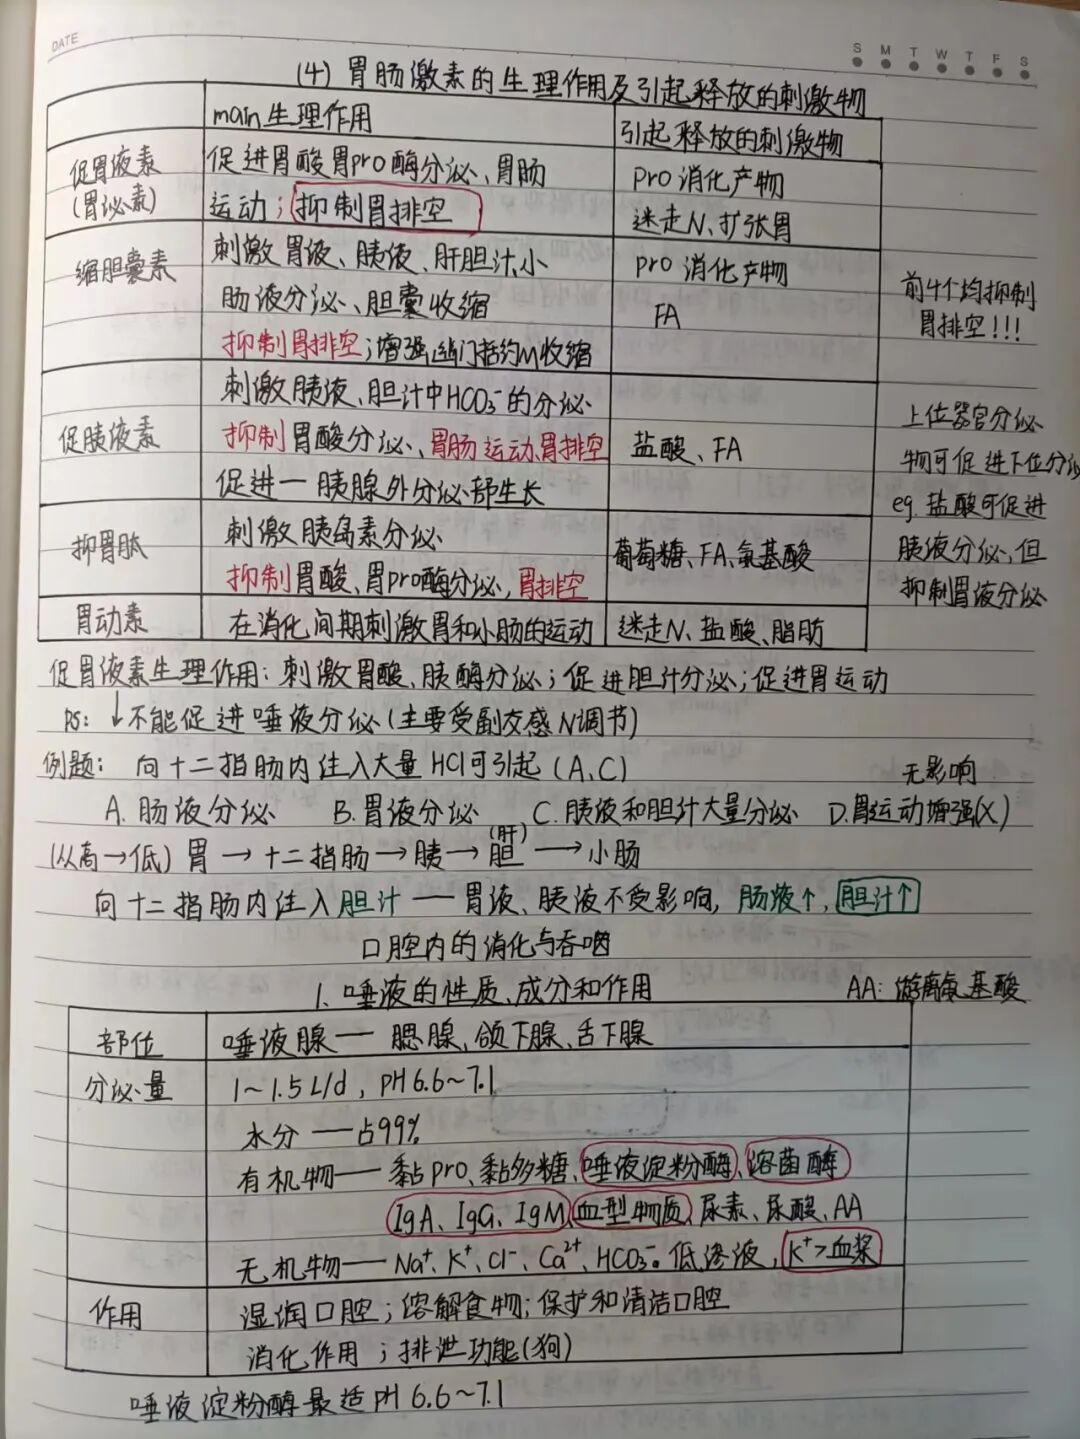 DATE
S M T W T F S
(4) 胃肠激素的生理作用及引起释放的刺激物
main生理作用
引起释放的刺激物
促胃液素
(胃泌素)
促进胃酸胃pro酶分泌、胃肠
运动;抑制胃排空
pro消化产物
迷走N、扩张胃
缩胆囊素
刺激胃液、胰液、肝胆汁、小
肠液分泌、胆囊收缩
抑制胃排空;增强幽门括约M收缩
pro消化产物
FA
前4个均抑制
胃排空!!!
促胰液素
刺激胰液、胆汁中HCO₃⁻的分泌
抑制胃酸分泌、胃肠运动、胃排空
促进一胰腺外分泌部生长
盐酸、FA
上位器官分泌
物可促进下位分泌
eg. 盐酸可促进
胰液分泌,但
抑制胃液分泌
抑胃肽
刺激胰岛素分泌
抑制胃酸、胃pro酶分泌,胃排空
葡萄糖、FA、氨基酸
胃动素
在消化间期刺激胃和小肠的运动
迷走N、盐酸、脂肪
促胃液素生理作用:刺激胃酸、胰酶分泌;促进胆汁分泌;促进胃运动
ps: ↓不能促进唾液分泌(主要受副交感N调节)
例题: 向十二指肠内注入大量HCl可引起(A、C)
无影响
A. 肠液分泌 B. 胃液分泌 C. 胰液和胆汁大量分泌 D. 胃运动增强(X)
(从高→低) 胃→十二指肠→胰→胆(肝)→小肠
向十二指肠内注入胆汁——胃液、胰液不受影响,肠液↑,胆汁↑
口腔内的消化与吞咽
1. 唾液的性质、成分和作用
AA: 游离氨基酸
部位
唾液腺——腮腺、颌下腺、舌下腺
分泌量
1~1.5L/d, pH6.6~7.1
水分——占99%
有机物——黏pro、黏多糖、唾液淀粉酶、溶菌酶
IgA、IgG、IgM、血型物质、尿素、尿酸、AA
无机物——Na⁺、K⁺、Cl⁻、Ca²⁺、HCO₃⁻。低渗液,K⁺>血浆
作用
湿润口腔;溶解食物;保护和清洁口腔
消化作用;排泄功能(狗)
唾液淀粉酶最适pH 6.6~7.1